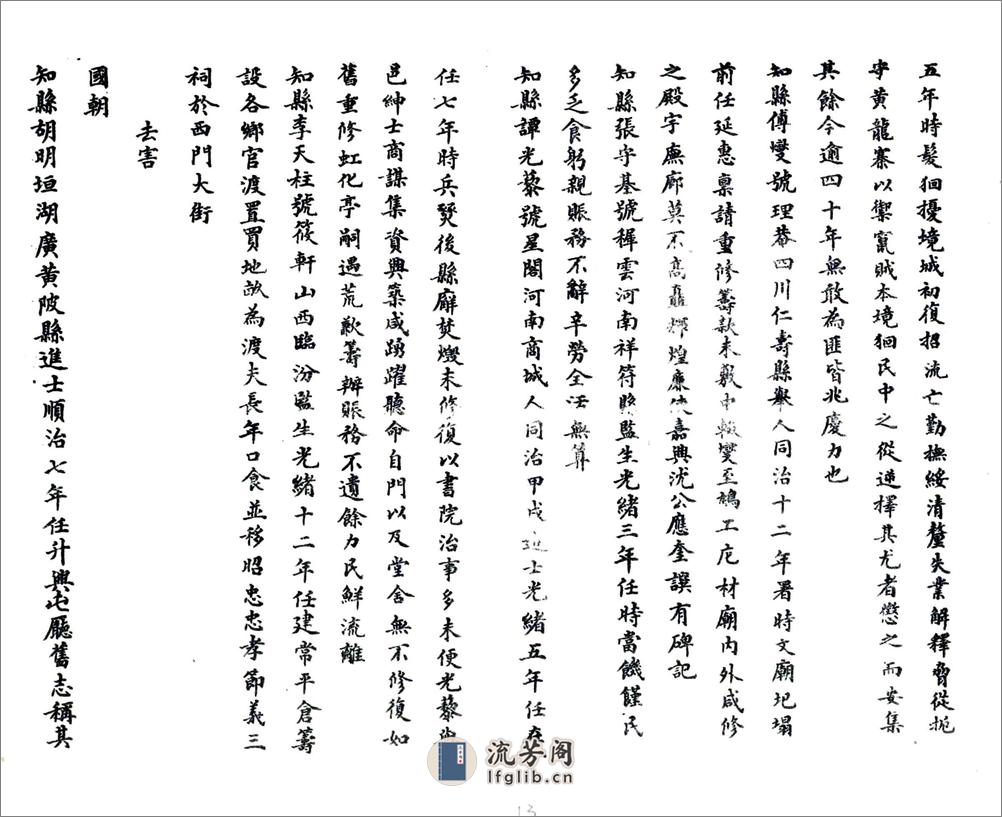 五年時髮徊擾境城初復招流亡勤撫綏清釐失業解釋脅從扼
守黃龍寨以禦竄賊本境徊民中之從逆擇其尤者懲之而安集
其餘今逾四十年無敢為匪皆兆慶力也
知縣傅燮號理菴四川仁壽縣舉人同治十二年署時文廟圮塌
前任延惠稟請重修籌款未敷中輟燮至鳩工庀材廟內外咸修
之殿宇廡廊莫不高矗輝煌廉使嘉興沈公應奎譔有碑記
知縣張守基號稺雲河南祥符縣監生光緒三年任時當饑饉民
多乏食躬親賬務不辭辛勞全活無算
知縣譚光藜號星閣河南商城人同治甲戌進士光緒五年任在
任七年時兵燹後縣廨焚燬未修復以書院治事多未便光藜
邑紳士商謀集資興築咸踴躍聽命自門以及堂舍無不修復如
舊重修虹化亭嗣遇荒歉籌辦賬務不遺餘力民鮮流離
知縣李天柱號筱軒山西臨汾監生光緒十二年任建常平倉籌
設各鄉官渡置買地畝為渡夫長年口食並移昭忠忠孝節義三
祠於西門大街
去害
國朝
知縣胡明垣湖廣黃陂縣進士順治七年任升興屯廳舊志稱其
流芳阁
lfglib.cn
13